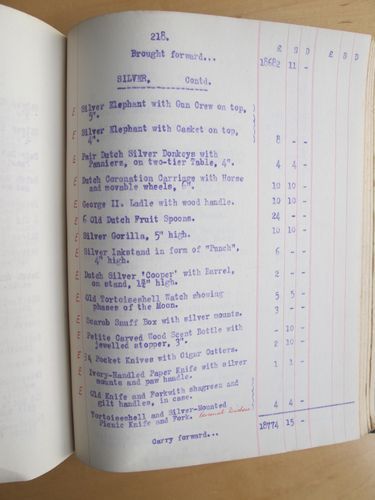 218.
£ S D £ S D
Brought forward... 18682 11 -
SILVER, Contd.
E Silver Elephant with Gun Crew on top,
5".
E Silver Elephant with Casket on top,
4". 8 - -
E Pair Dutch Silver Donkeys with
Panniers, on two-tier Table, 4". 4 4 -
E Dutch Coronation Carriage with Horse
and movable wheels, 6". 10 10 -
E George II. Ladle with wood handle. 10 10 -
E 6 Old Dutch Fruit Spoons. 24 - -
E Silver Gorilla, 5" high. 10 10 -
E Silver Inkstand in form of "Punch",
4" high. 6 - -
E Dutch Silver 'Cooper' with Barrel,
on stand, 1½" high. 2 - -
E Old Tortoiseshell Watch showing
phases of the Moon. 5 5 -
E Scarab Snuff Box with silver mounts. 3 - -
E Petite Carved Wood Scent Bottle with
jewelled stopper, 3". - 10 -
E 34 Pocket Knives with Cigar Cutters. 2 10 -
E Ivory-Handled Paper Knife with silver
mounts and paw handle. 1 1 -
E Old Knife and Fork with shagreen and
gilt handles, in case.
Tortoiseshell and Silver-Mounted
Picnic Knife and Fork. 4 4 -
Carry forward... 18774 15 -